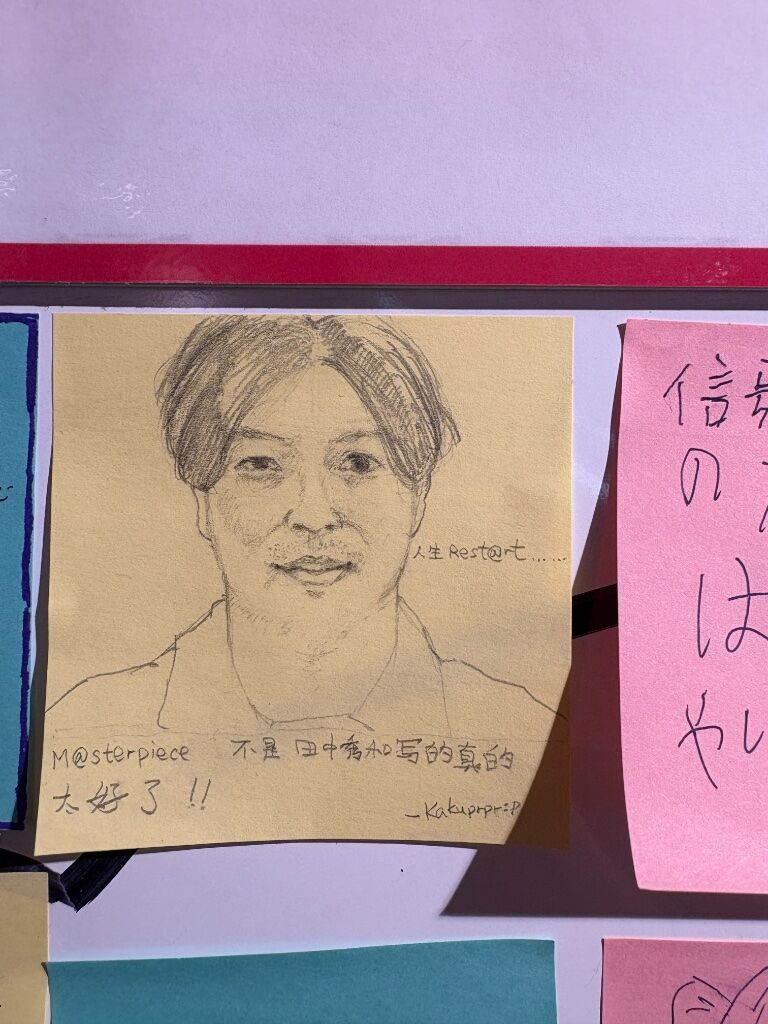 人生 Rest@rt......
M@sterpiece 不是 田中秀和写的真的
太好了 !!
—Kakuprpr:P
信
の
は
やい